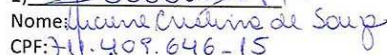 Nome: Cristina de Souza
CPF: 711.409.646-15